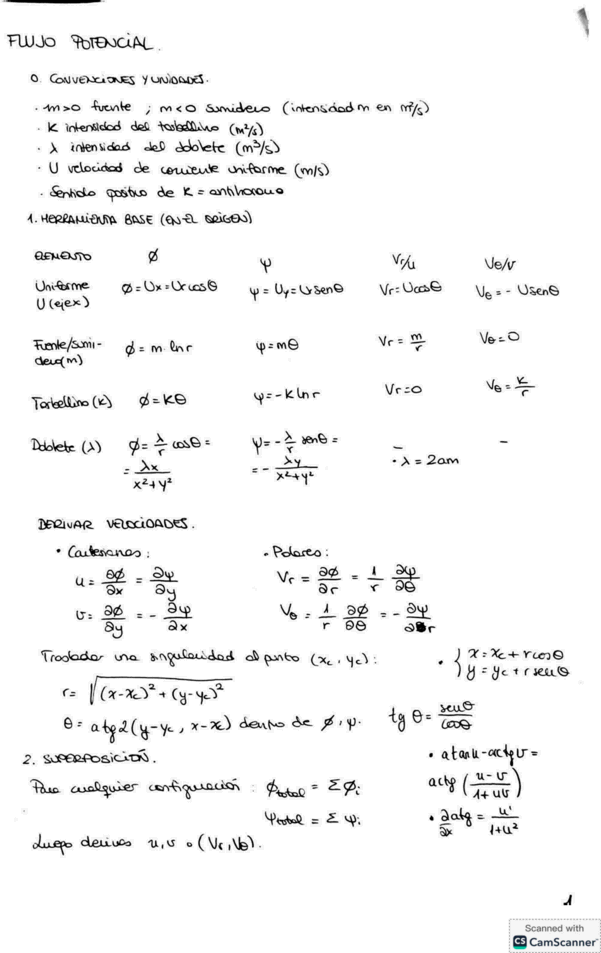 FLUJO POTENCIAL.
0. CONVENCIONES Y UNIDADES.
· m>0 fuente ; m<0 sumidero (intensidad m en m²/s)
· K intensidad del torbellino (m²/s)
· λ intensidad del doblete (m³/s)
· U velocidad de corriente uniforme (m/s)
· Sentido positivo de K = antihorario
1. HERRAMIENTA BASE (EN EL ORIGEN)
ELEMENTO ϕ ψ Vr/u Vθ/v
Uniforme U (eje x) ϕ = Ux = Ur cosθ ψ = Uy = Ur senθ Vr = Ucosθ Vθ = - Usenθ
Fuente/sumi-dero(m) ϕ = m·ln r ψ = mθ Vr = m/r Vθ = 0
Torbellino (K) ϕ = Kθ ψ = -K ln r Vr = 0 Vθ = K/r
Doblete (λ) ϕ = λ/r cosθ = ψ = - λ/r senθ = – –
= λx/(x²+y²) = - λy/(x²+y²) · λ = 2am
DERIVAR VELOCIDADES.
· Cartesianas: · Polares:
u = ∂ϕ/∂x = ∂ψ/∂y Vr = ∂ϕ/∂r = 1/r ∂ψ/∂θ
v = ∂ϕ/∂y = - ∂ψ/∂x Vθ = 1/r ∂ϕ/∂θ = - ∂ψ/∂r
Trasladar una singularidad al punto (xc, yc): · { x = xc + r cosθ
y = yc + r senθ
r = √((x-xc)² + (y-yc)²)
θ = atg2(y-yc, x-xc) dentro de ϕ, ψ. tg θ = senθ/cosθ
2. SUPERPOSICIÓN. · atanu - arctg v =
Para cualquier configuración : ϕtotal = Σϕi arctg ((u-v)/(1+uv))
ψtotal = Σ ψi · ∂/∂x atg = u'/(1+u²)
Luego derivas u,v o (Vr, Vθ).
1
Scanned with
CS CamScanner